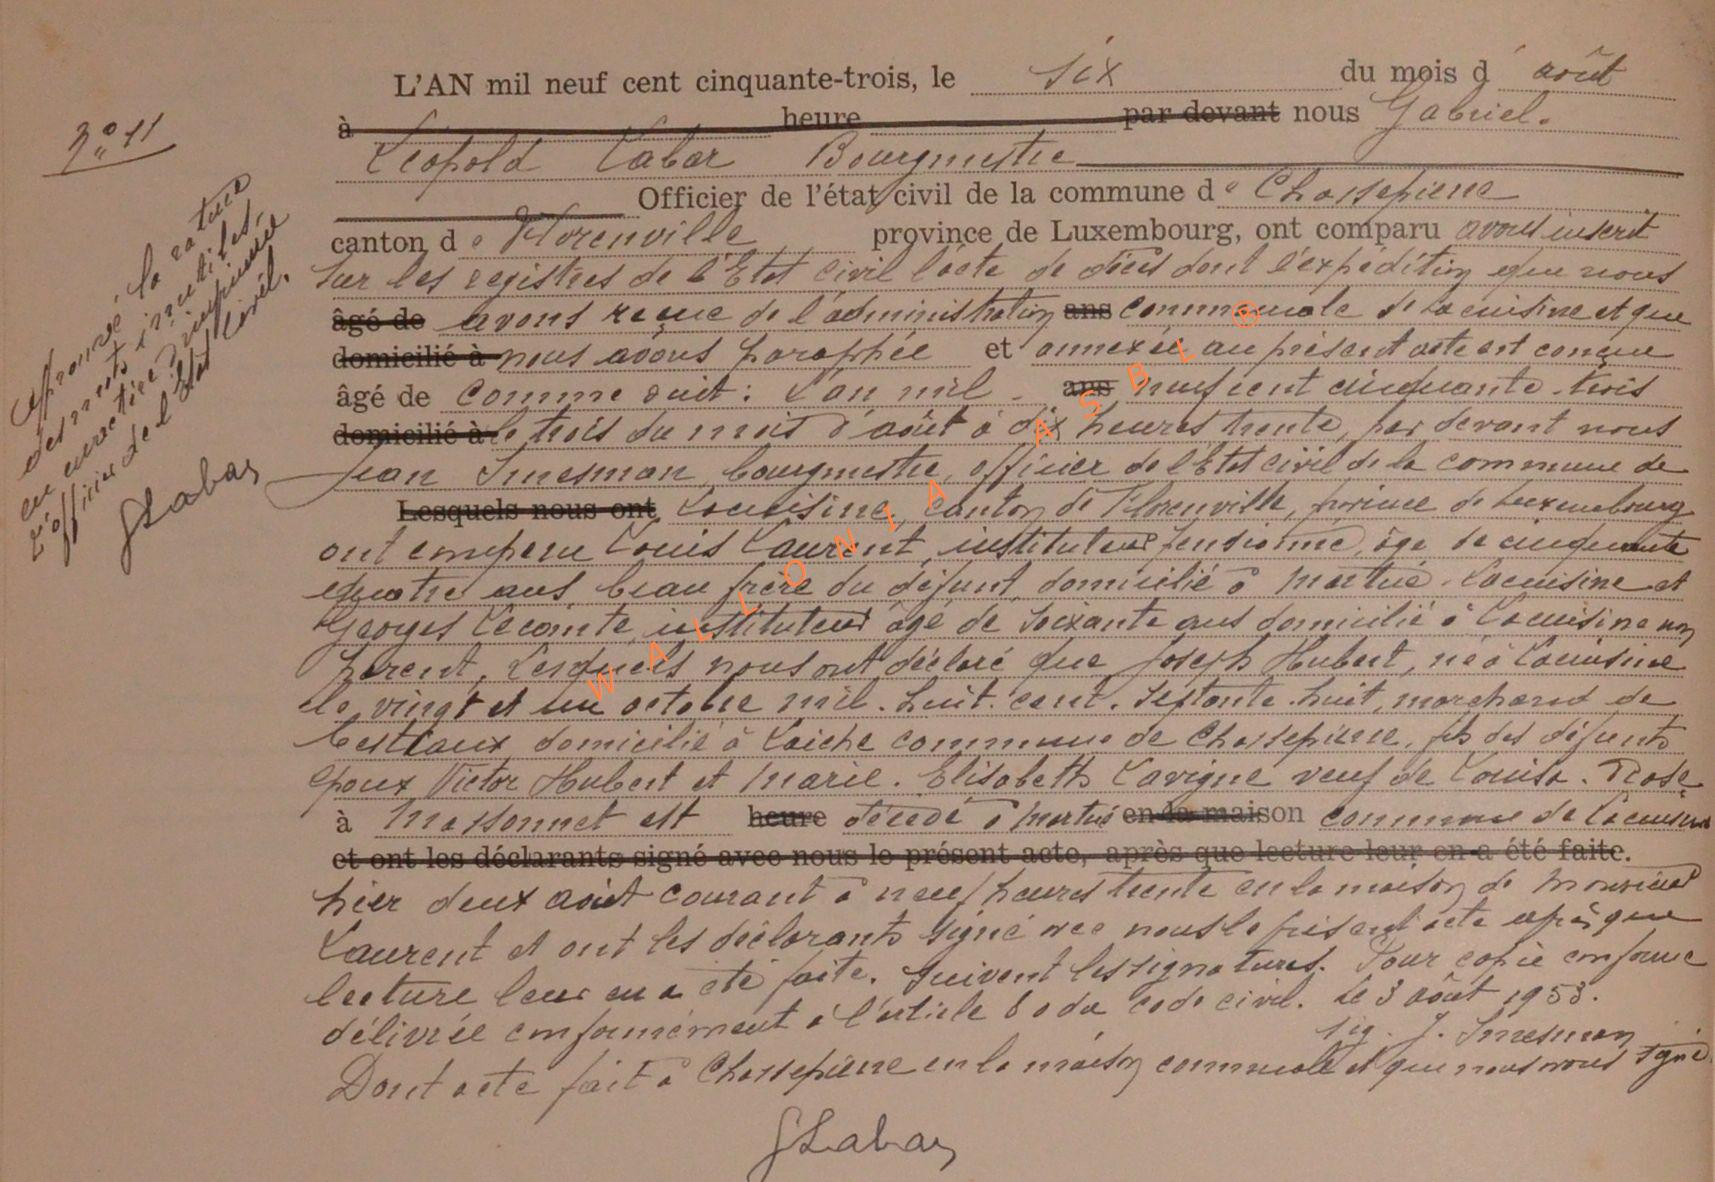 L'AN mil neuf cent cinquante-trois, le six du mois d' août
à heure par devant nous Gabriel.
Léopold Labar Bourgmestre
Officier de l'état civil de la commune de Chassepierre
canton de Florenville province de Luxembourg, ont comparu avons inscrit
sur les registres de l'Etat Civil l'acte de décès dont l'expédition que nous
âgé de avons reçue de l'administration ans communale de Lacuisine et que
domicilié à nous avons paraphée et annexée au présent acte est conçue
âgé de comme suit : L'an mil ans neuf cent cinquante-trois
domicilié à le trois du mois d'août à dix heures trente, par devant nous
Jean Smesman, bourgmestre, officier de l'Etat civil de la commune de
Lesquels nous ont Lacuisine, canton de Florenville, province de Luxembourg
ont comparu Louis Laurent, instituteur pensionné, âgé de cinquante
quatre ans beau frère du défunt, domicilié à Martué-Lacuisine et
Georges Lecomte, instituteur âgé de soixante ans domicilié à Lacuisine non
parent, Lesquels nous ont déclaré que Joseph Hubert, né à Lacuisine
le vingt et un octobre mil-huit-cent-septante-huit, marchand de
bestiaux domicilié à Laiche commune de Chassepierre, fils des défunts
époux Victor Hubert et Marie-Elisabeth Lavigne veuf de Louisa-Rose
à Massonnet est heure décédé à Martué en la maison commune de Lacuisine
et ont les déclarants signé avec nous le présent acte, après que lecture leur en a été faite.
hier deux août courant à neuf heures trente en la maison de monsieur
Laurent et ont les déclarants signé avec nous le présent acte après que
lecture leur en a été faite. Suivent les signatures. Pour copie conforme
délivrée conformément à l'article 80 du code civil. Le 3 août 1953.
sig. J. Smesman
Dont acte fait à Chassepierre en la maison communale et que nous avons signé
GLabar
N° 11
Approuvé la rature
des mots inutiles,
en caractère imprimés
L'officier de l'Etat Civil.
GLabar
WALLONIA ASBL ®